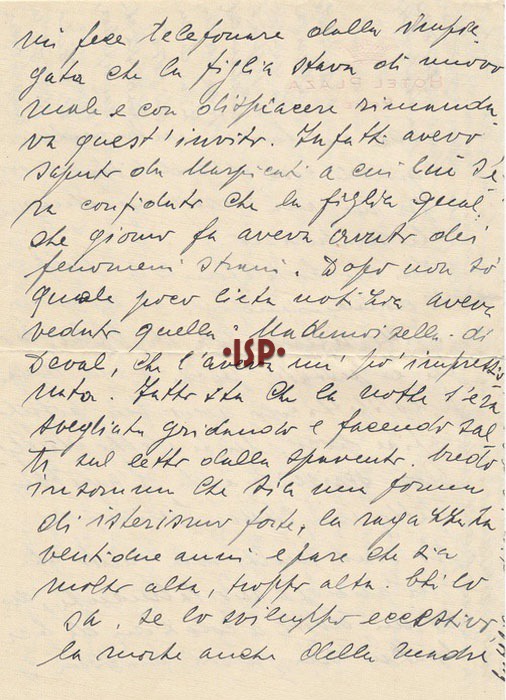 mi fece telefonare dalla impie
gata che la figlia stava di nuovo
male e con dispiacere rimanda
va quest'invito. Infatti avevo
saputo da Marpicati a cui lui s'e
ra confidato che la figlia qual
che giorno fa aveva avuto dei
fenomeni strani. Dopo non so
quale poco lieta notizia aveva
veduto quella "Mademoiselle" di
Deval, che l'aveva un po' impressio
nata. Fatto sta che la notte s'era
svegliata gridando e facendo sal
ti sul letto dallo spavento. Credo
insomma che sia una forma
di isterismo forte, la ragazza ha
ventidue anni e pare che sia
molto alta, troppo alta. Chi lo
sa, se lo sviluppo eccessivo,
la morte anche della madre
HOTEL PLAZA
·ISP·